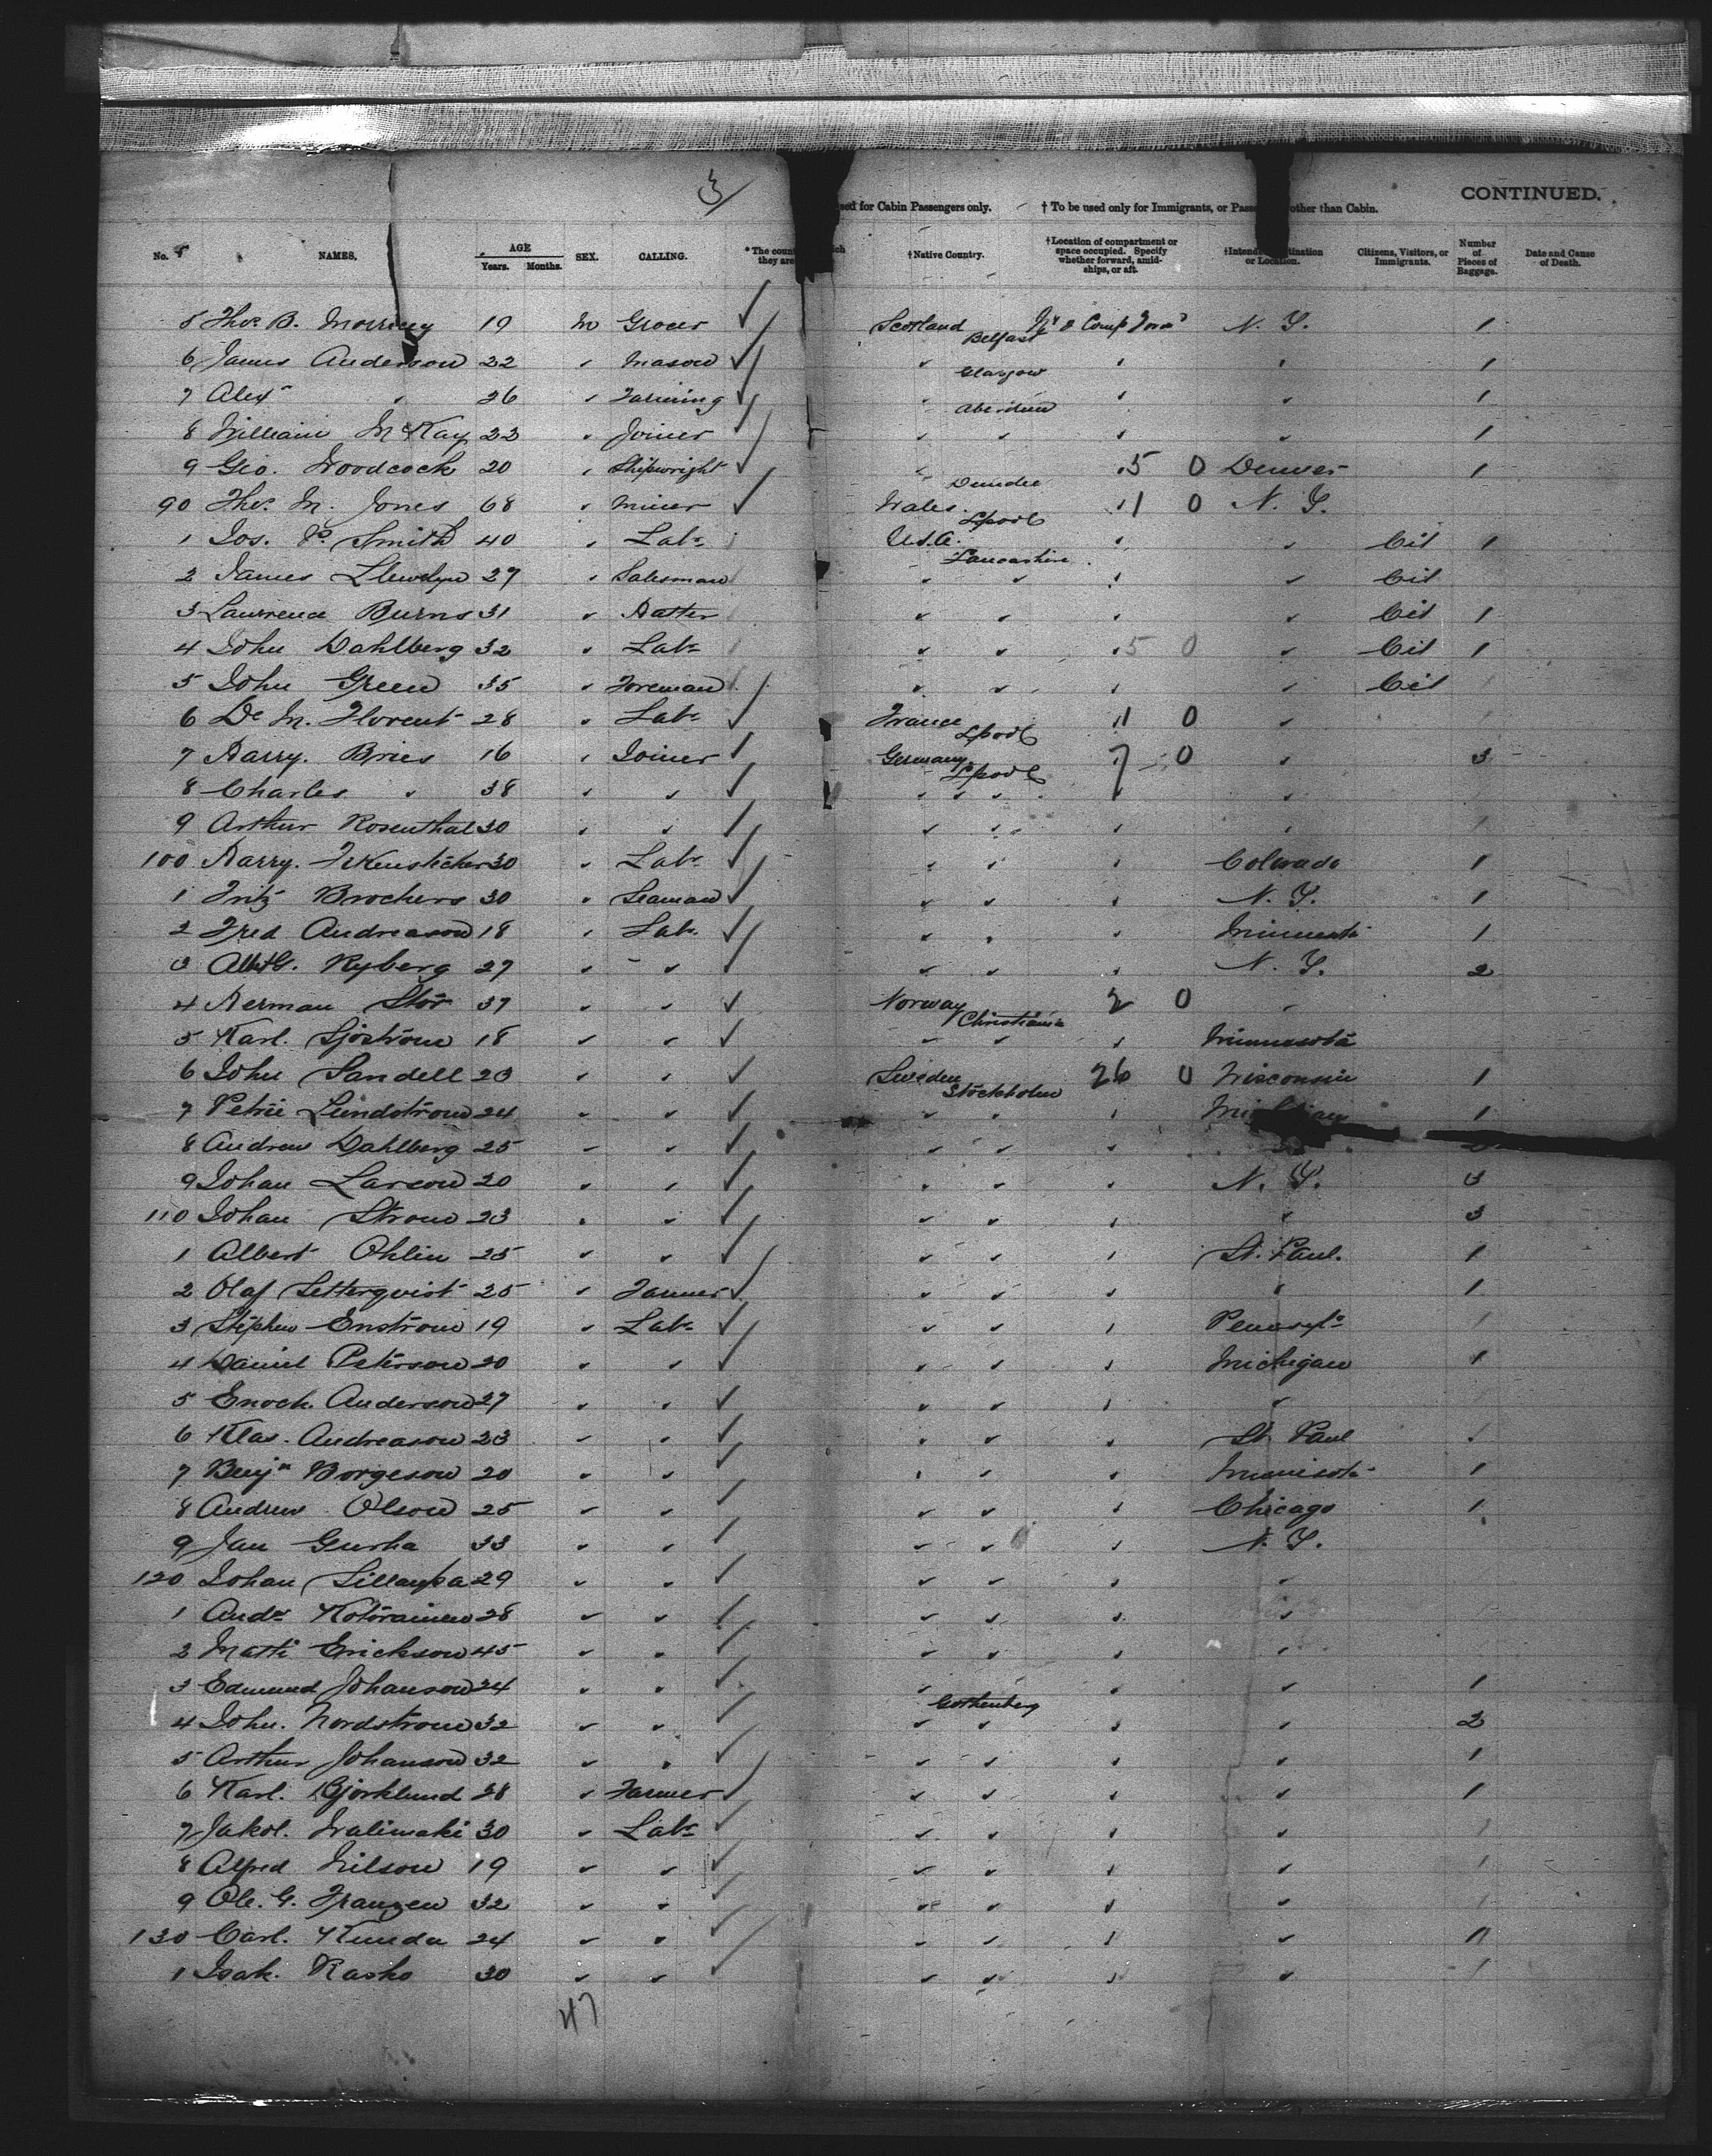 3/
sed for Cabin Passengers only. † To be used only for Immigrants, or Passe other than Cabin. CONTINUED.
No. NAMES. AGE Years. Months. SEX. CALLING. * The coun ich they are † Native Country. † Location of compartment or space occupied. Specify whether forward, amidships, or aft. † Intend ination or Location. Citizens, Visitors, or Immigrants. Number of Pieces of Baggage. Date and Cause of Death.
5 Thos. B. 19 M Grocer ✓ Scotland Belfast N. Y. 1
6 James Anderson 22 " Mason ✓ " Glasgow " " 1
7 Alex " 26 " Farming ✓ " Aberdeen " " 1
8 William McKay 22 " Joiner ✓ " " " " 1
9 Geo. Woodcock 20 " Shipwright ✓ " Dundee " 5 0 Denver 1
90 Thos. M. Jones 68 " Miner ✓ Wales L'pool " 1 0 N. Y.
1 Jos. P. Smith 40 " Labr U.S.A. Lancashire " " Cit 1
2 James Llewelyn 27 " Salesman " " " " Cit
3 Lawrence Burns 31 " Hatter " " " " Cit 1
4 John Dahlberg 32 " Labr " " " 5 0 " Cit 1
5 John Green 35 " Foreman " " " " Cit 1
6 De M. Florent 28 " Labr ✓ France L'pool 1 0 " 1
7 Harry. Bries 16 " Joiner ✓ Germany L'pool 7 0 " 3
8 Charles " 38 " " ✓ " " " "
9 Arthur Rosenthal 30 " " ✓ " " " " 1
100 Harry. 30 " Labr ✓ " " " Colorado 1
1 Fritz Brochers 30 " Seaman ✓ " " " N. Y. 1
2 Fred Andreason 18 " Labr ✓ " " " Minnesota 1
3 Albt G. Ryberg 27 " " ✓ " " " N. Y. 2
4 Herman Stör 37 " " ✓ Norway Christiania 2 0 "
5 Karl. Sjöström 18 " " ✓ " " " Minnesota
6 John Sandell 23 " " ✓ Sweden Stockholm 26 0 Wisconsin 1
7 Petrie Lundström 24 " " ✓ " " " 1
8 Andrew Dahlberg 25 " " ✓ " " "
9 Johan Larson 20 " " ✓ " " " N. Y. 3
110 Johan Strom 23 " " ✓ " " " " 3
1 Albert Ohlin 25 " " ✓ " " " St. Paul. 1
2 Olaf Setterqvist 25 " Farmer ✓ " " " " 1
3 Stephen Enstrom 19 " Labr ✓ " " " Pennsyla 1
4 Daniel Peterson 20 " " ✓ " " " Michigan 1
5 Enoch. Anderson 27 " " ✓ " " " "
6 Klas. Andreason 23 " " ✓ " " " St. Paul 1
7 Benjn Borgeson 20 " " ✓ " " " Minnesota 1
8 Andrew Olson 25 " " ✓ " " " Chicago 1
9 Jan Gurha 33 " " ✓ " " " N. Y.
120 Johan Sillanpaa 29 " " ✓ " " " "
1 Andw Kotorainen 28 " " ✓ " " " "
2 Matti Erickson 45 " " ✓ " " " "
3 Edmund Johanson 24 " " ✓ " " " " 1
4 John. Nordstrom 32 " " ✓ Gothenberg " " " " 2
5 Arthur Johanson 32 " " ✓ " " " " 1
6 Karl. Bjorklund 28 " Farmer ✓ " " " " 1
7 Jakob. Walimaki 30 " Labr ✓ " " " " 1
8 Alfred Nilson 19 " " ✓ " " " " 1
9 Ole. G. Franzen 32 " " ✓ " " " " 1
130 Carl. Kunda 24 " " ✓ " " " " 1
1 Isak. Rasko 30 " " ✓ " " " " 1
47